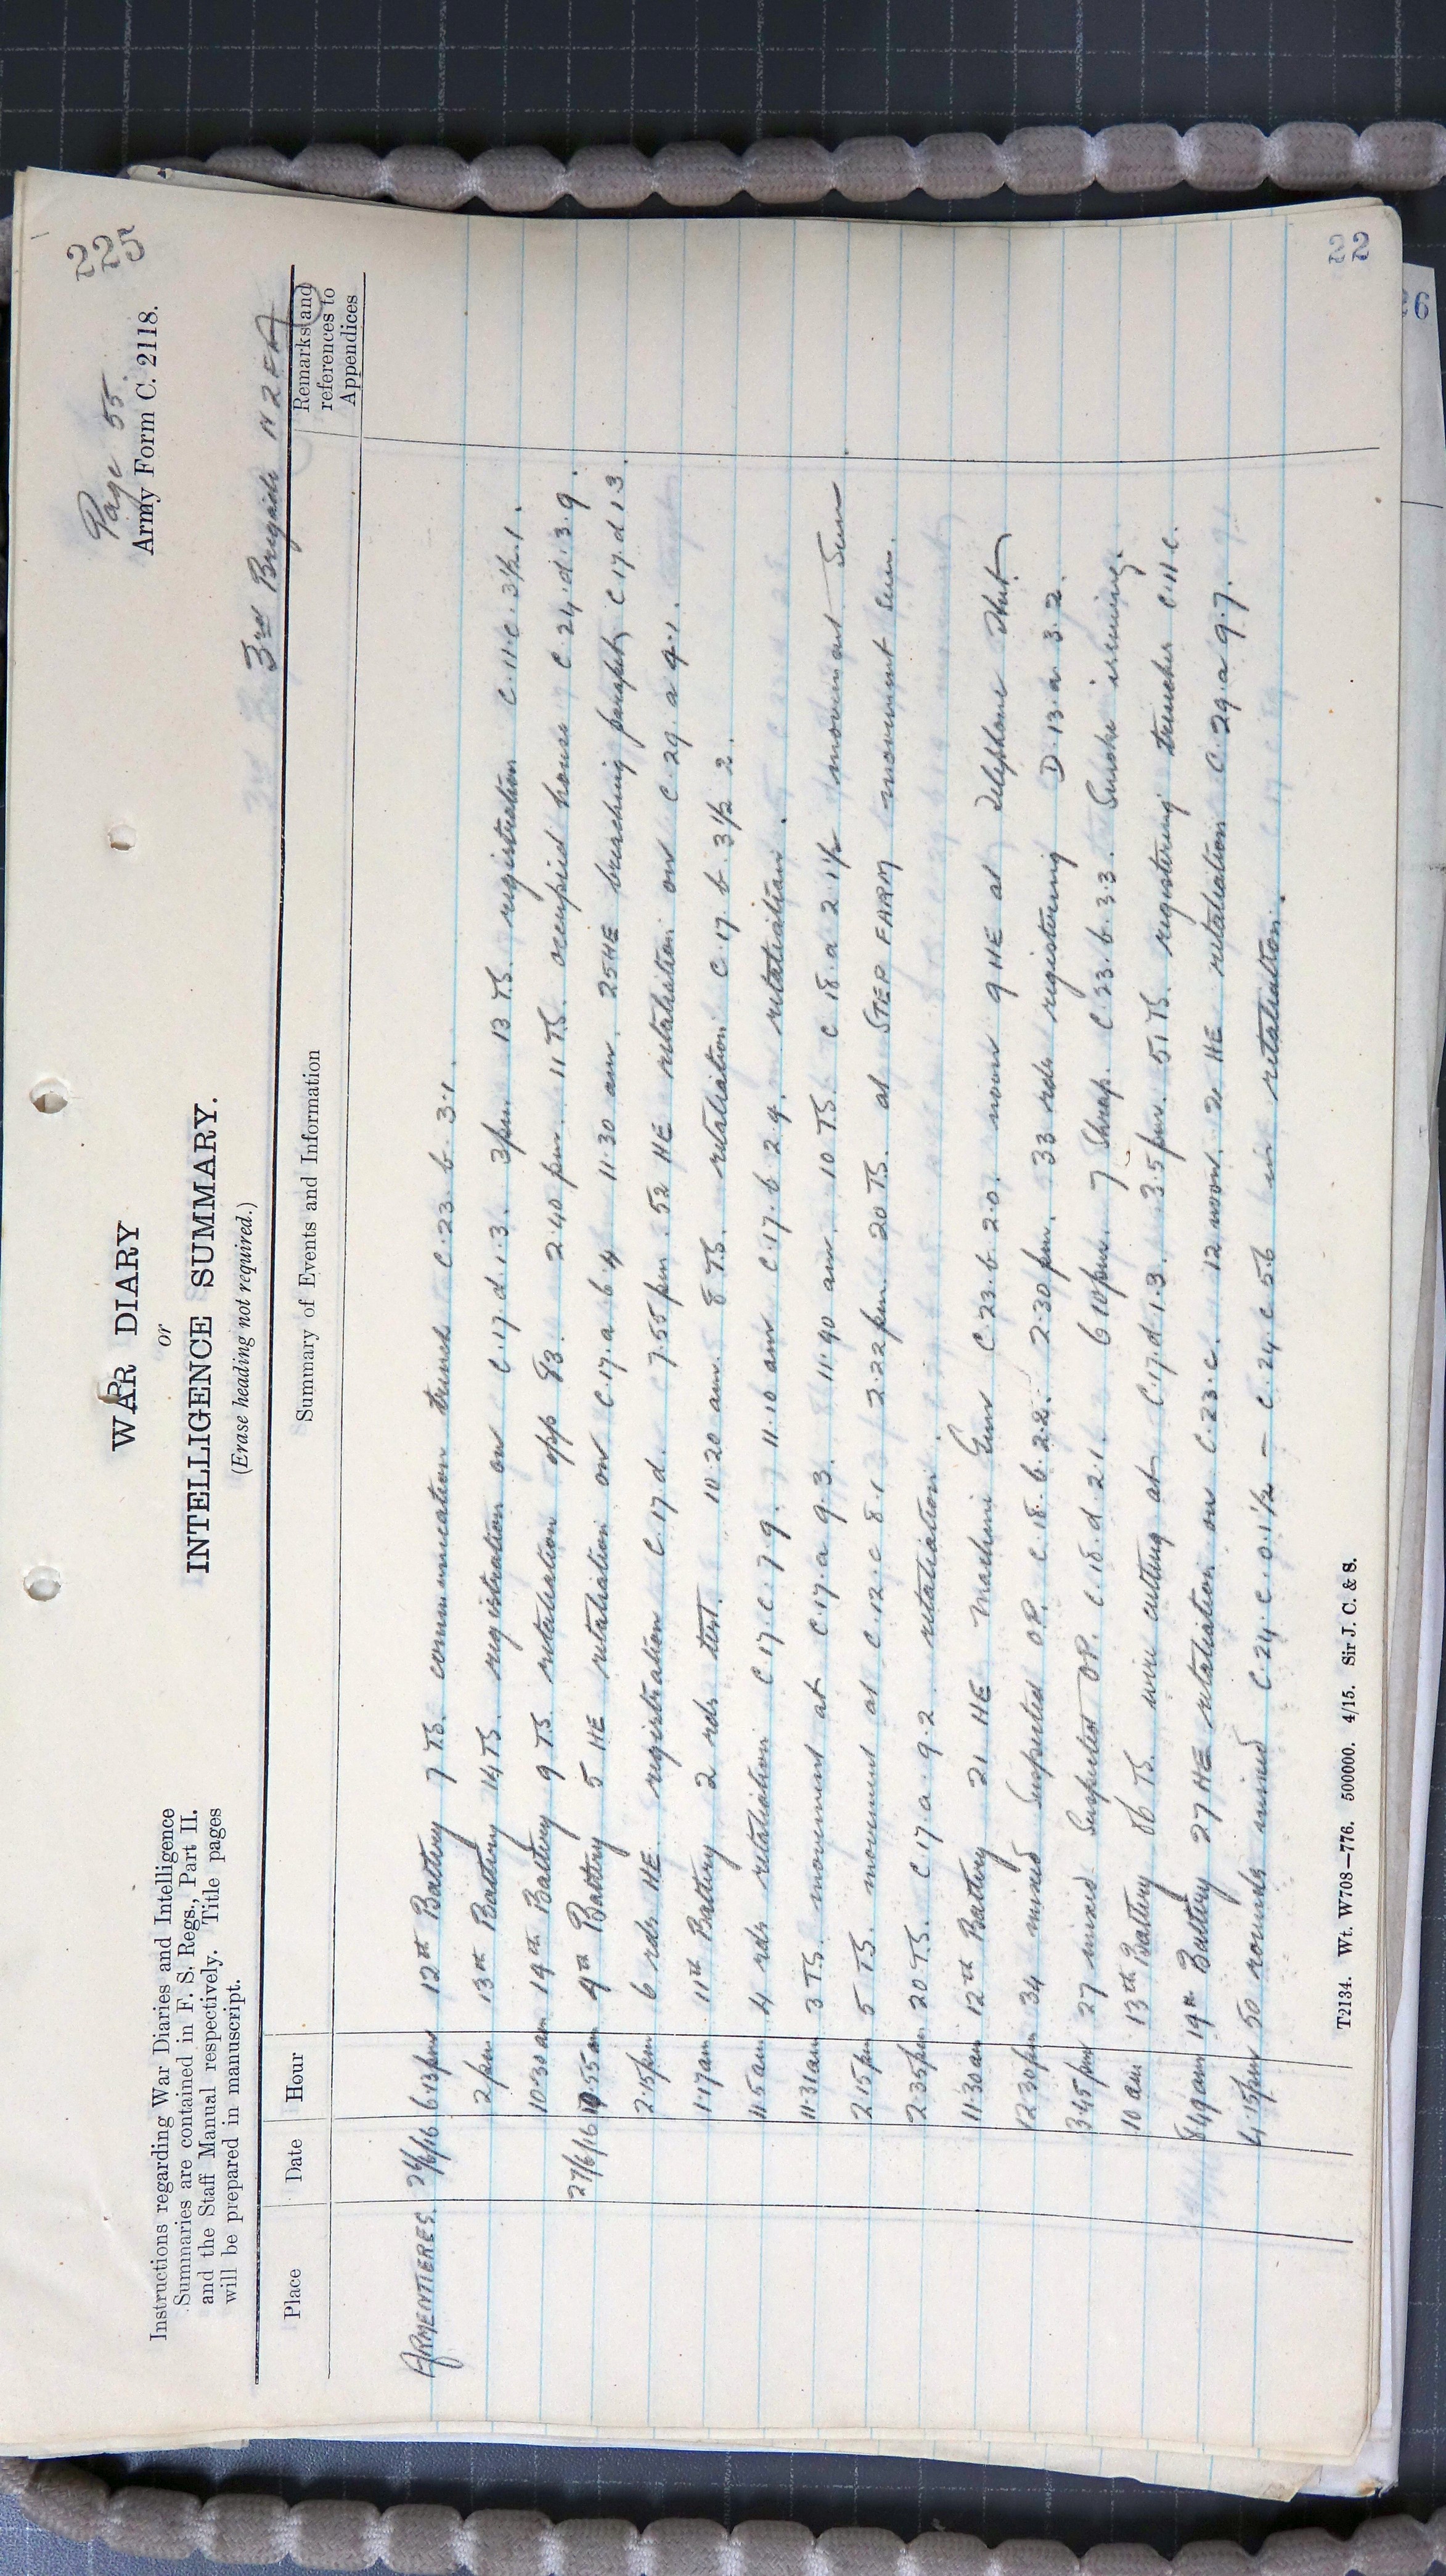 Page 55.
225
Army Form C. 2118.
WAR DIARY
or
INTELLIGENCE SUMMARY.
(Erase heading not required.)
Instructions regarding War Diaries and Intelligence
Summaries are contained in F. S. Regs., Part II.
and the Staff Manual respectively. Title pages
will be prepared in manuscript.
3rd Brigade NZFA
Place Date Hour Summary of Events and Information Remarks and references to Appendices
ARMENTIERES. 26/6/16 6.13pm 12th Battery 7 TS. communication trench C.23.b.3.1.
2pm 13th Battery 14 TS. registration on C.17.d.1.3. 3pm. 13 TS. registration C.11.c.3½.1.
10.30am 19th Battery 9 TS. retaliation opp 83. 2.40 pm. 11 TS. occupied house C.24.d.3.9.
27/6/16 10.55am 4th Battery 5 HE retaliation on C.17.a 6.4 11.30 am. 25HE breaching parapet C.17.d 1.3.
2.15pm 6 rds HE. registration C.17.d. 7.55pm. 52 HE retaliation on C.29.a 4.1.
1.17am 11th Battery 2 rds test. 10.20 am. 8 TS. retaliation C.17.b.3½ 2.
11.5am 4 rds retaliation C.17.c.7.9. 11.10 am C.17.b.2.4. retaliation.
11.31am 3 TS. movement at C.17.a 9.3. 11.40 am. 10 TS. C 18.a 2.1½ movement seen
2.15pm 5 TS. movement at C.12.c 8.1 2.22pm. 20 TS. at STEP FARM movement seen.
2.35pm 20 TS. C.17.a.9.2 retaliation.
11.30am 12th Battery 21 HE Machine Gun C.23.b.2.0. noon 9 HE at Telephone Hut
12.30pm 34 mixed Suspected OP. C.18.b.2.2. 2.30pm. 33 rds registering D.13.a.3.2.
3.45pm 27 mixed Suspected OP. C.18.d.2.1. 6.10pm. 7 Shrap. C.23.b.3.3. Smoke issuing.
10 am 13th Battery 86 TS. wire cutting at C.17.d.1.3. 3.5pm. 51 TS. registering trenches C.11.c.
8.49am 19th Battery 27 HE retaliation on C.23.c. 12 noon. 21 HE retaliation C.29.a 9.7.
4.15pm 50 rounds mixed C.24.c.0.1½ – C.24.c.5.6 in retaliation.
T2134. Wt. W708—776. 500000. 4/15. Sir J. C. & S.
22